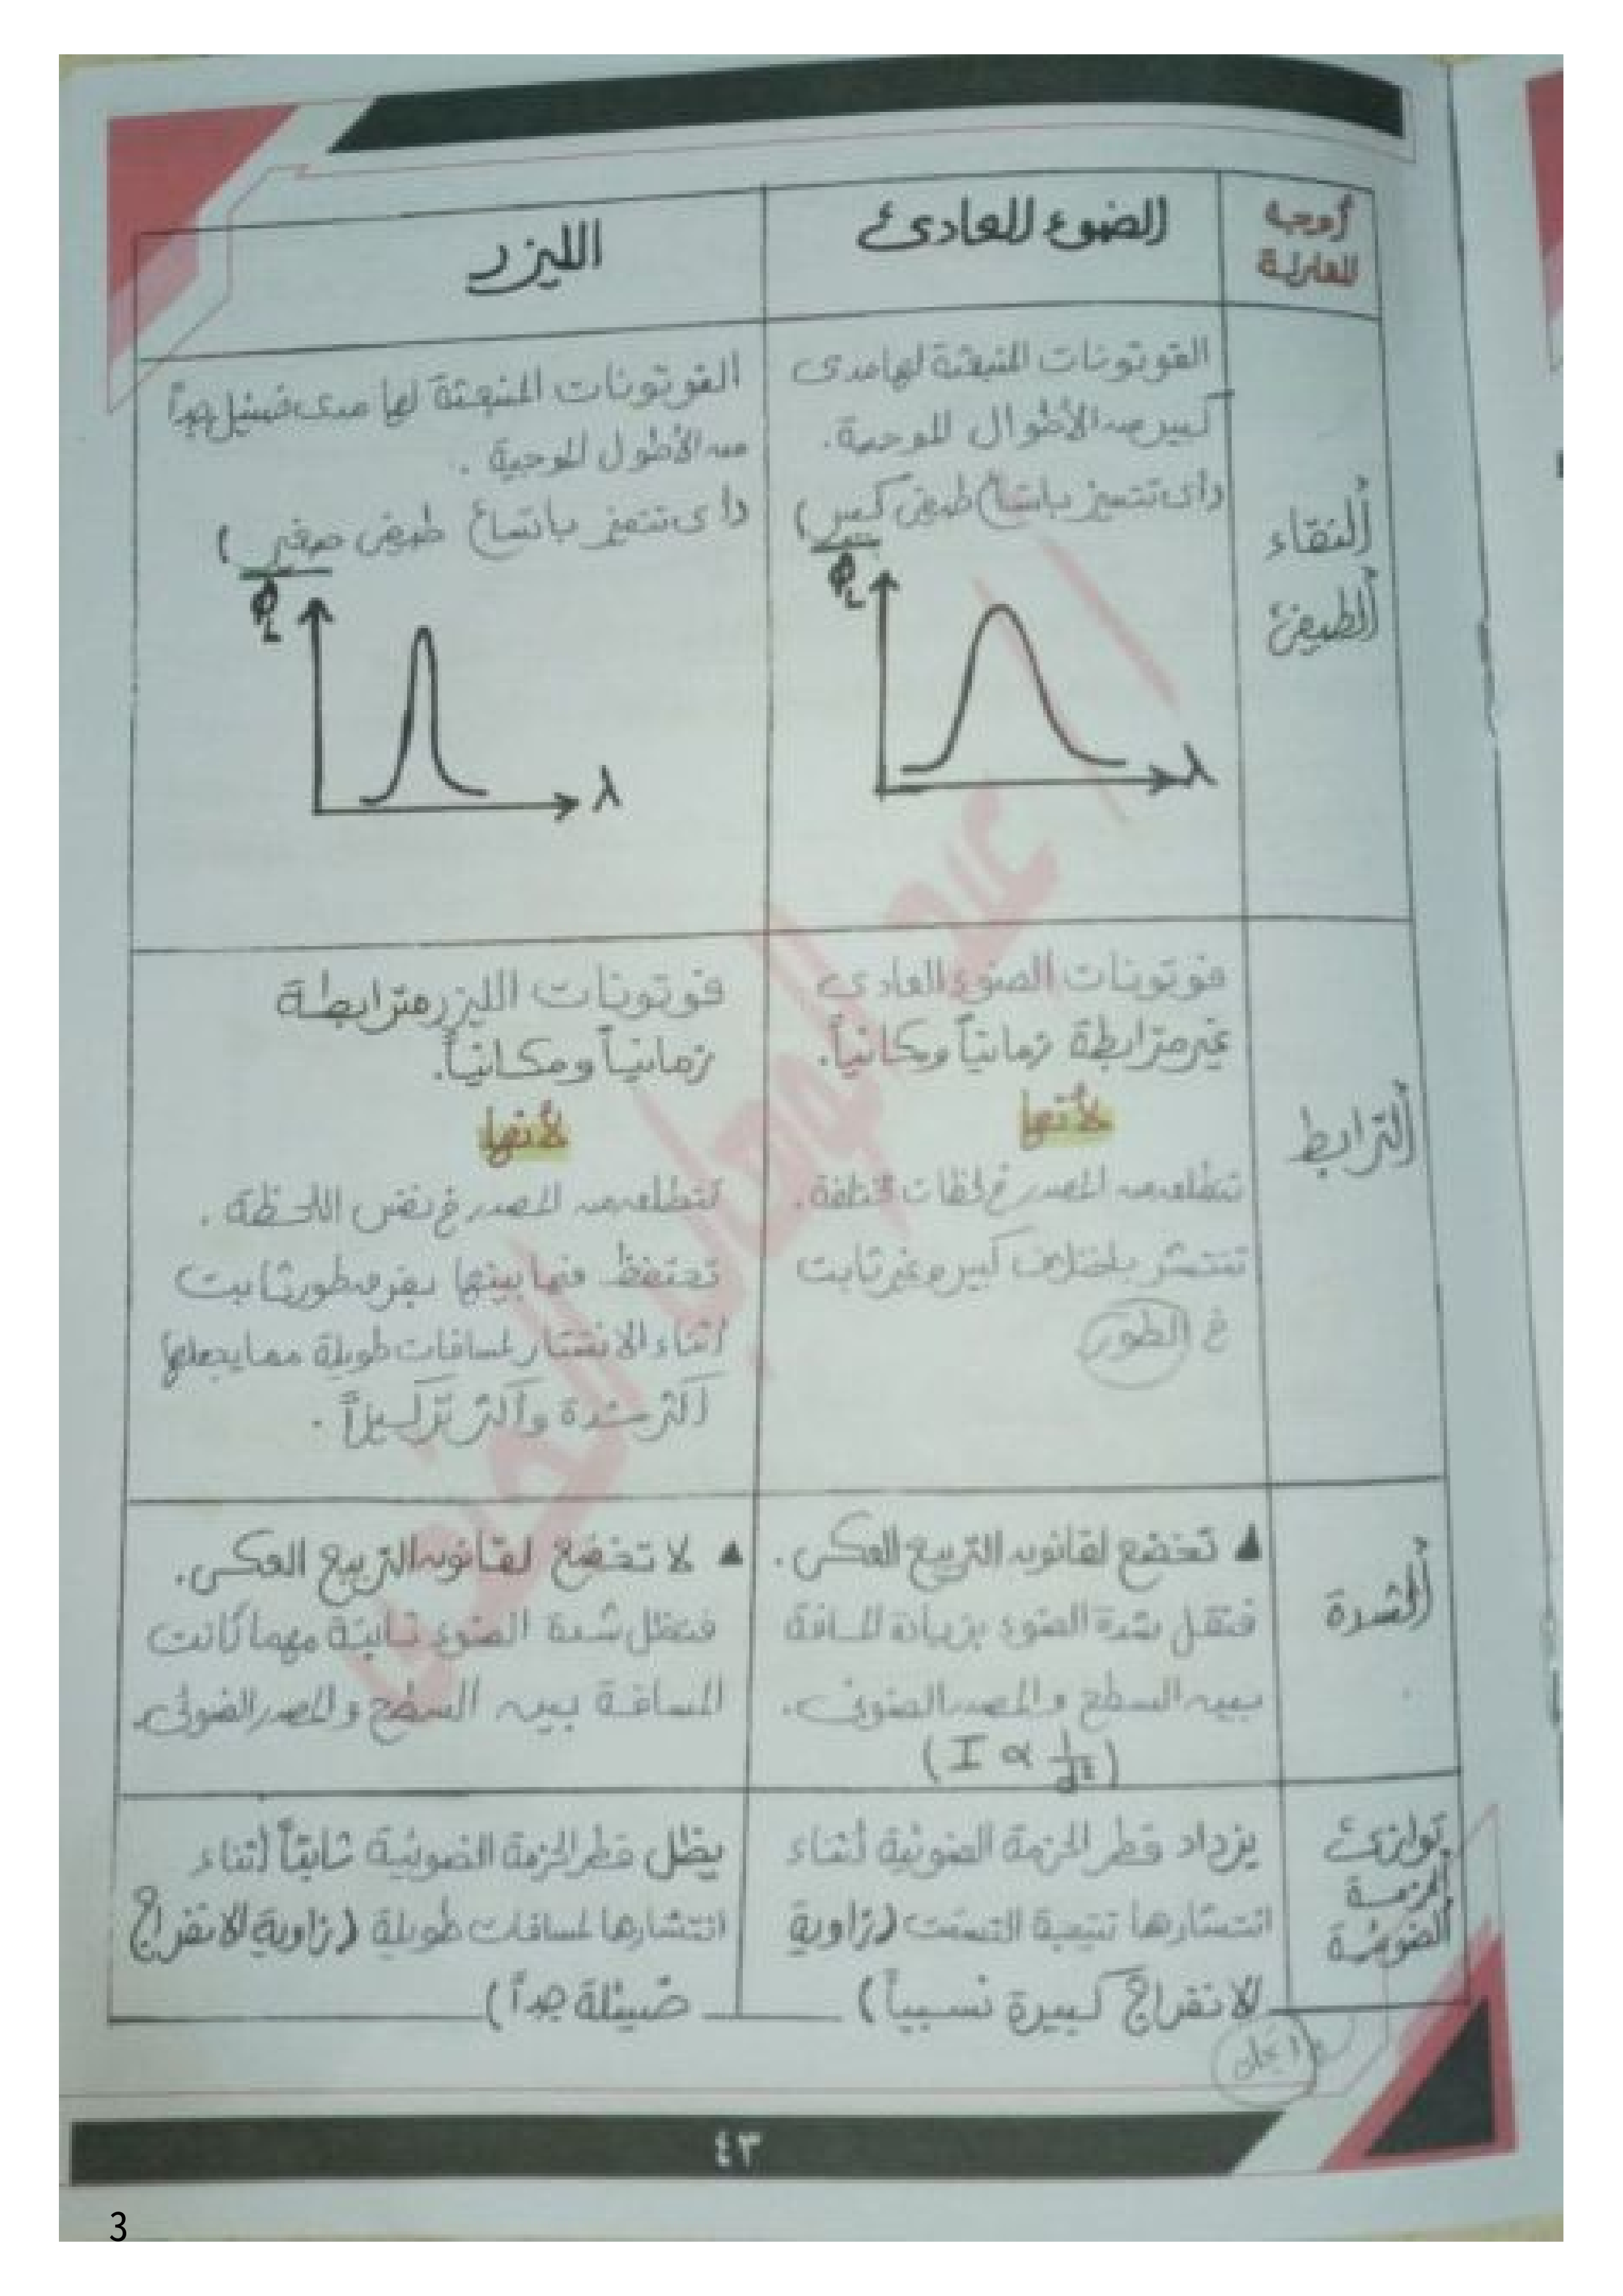 أوجه
المقارنة
الضوء العادى
الليزر
النقاء
الطيفى
الفوتونات المنبعثة لها مدى
كبير من الأطوال الموجية.
(أى تتميز باتساع طيفى كبير)
φL
λ
الفوتونات المنبعثة لها مدى ضئيل جداً
من الأطول الموجية .
(أى تتميز باتساع طيفى صغير)
φL
λ
الترابط
فوتونات الضوء العادى
غير مترابطة زمانياً ومكانياً.
لأنها
تنطلق من المصدر فى لحظات مختلفة.
تنتشر باختلاف كبير وغير ثابت
فى الطور
فوتونات الليزر مترابطة
زمانياً ومكانياً.
لأنها
تنطلق من المصدر فى نفس اللحظة .
تحتفظ فيما بينها بفرق طور ثابت
أثناء الانتشار لمسافات طويلة مما يجعلها
أكثر شدة وأكثر تركيزاً .
الشدة
▲ تخضع لقانون التربيع العكسى.
فتقل شدة الضوء بزيادة المسافة
بين السطح والمصدر الضوئى.
(I ∝ 1/d²)
▲ لا تخضع لقانون التربيع العكسى.
فتظل شدة الضوء ثابتة مهما كانت
المسافة بين السطح والمصدر الضوئى
توازى
الحزمة
الضوئية
يزداد قطر الحزمة الضوئية أثناء
انتشارها نتيجة التشتت (زاوية
الانفراج كبيرة نسبياً)
يظل قطر الحزمة الضوئية ثابتاً أثناء
انتشارها لمسافات طويلة (زاوية الانفراج
ضئيلة جداً)
٤٣
3